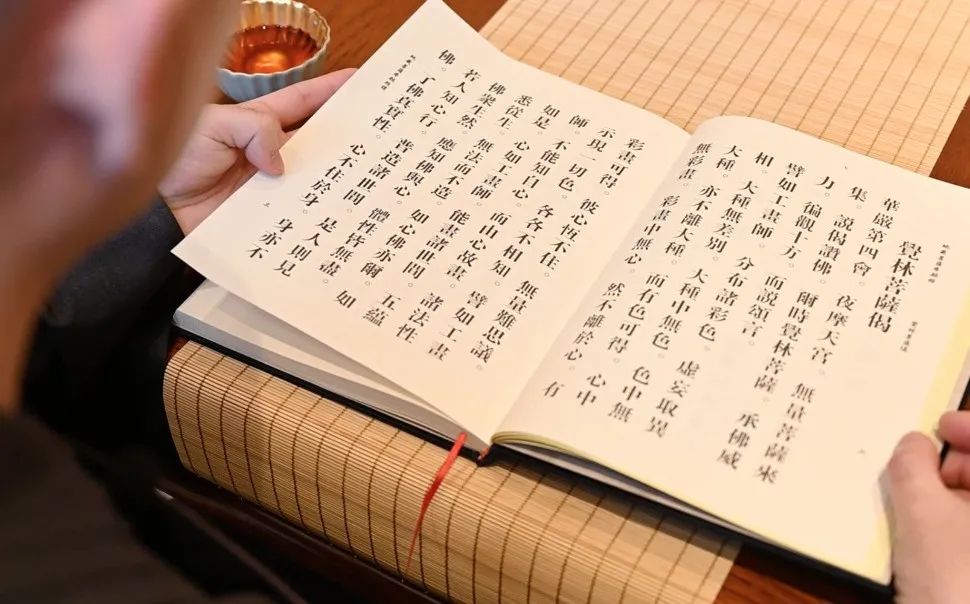 覺林菩薩偈
華嚴第四會。夜摩天宮。無量菩薩來
集。說偈讚佛。爾時覺林菩薩。承佛威
力。徧觀十方。而說頌言。
譬如工畫師。分布諸彩色。虛妄取異
相。大種無差別。大種中無色。色中無
大種。亦不離大種。而有色可得。心中
無彩畫。彩畫中無心。然不離於心。有
彩畫可得。彼心恆不住。無量難思議。
示現一切色。各各不相知。譬如工畫
師。不能知自心。而由心故畫。諸法性
如是。心如工畫師。能畫諸世間。五蘊
悉從生。無法而不造。如心佛亦爾。如
佛衆生然。應知佛與心。體性皆無盡。
若人知心行。普造諸世間。是人則見
佛。了佛真實性。心不住於身。身亦不
三